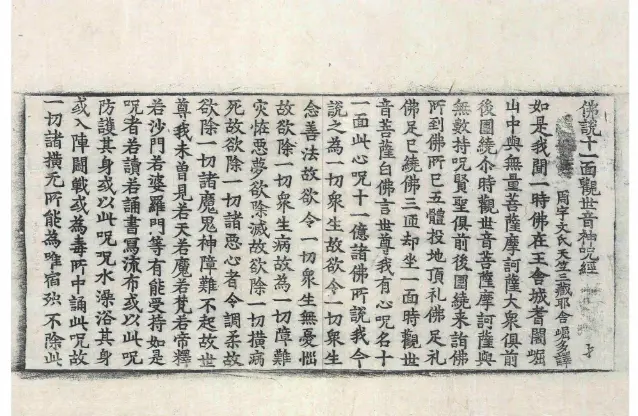 佛說十一面觀世音神呪經
周宇文氏天竺三藏耶舍崛多譯
如是我聞一時佛在王舍城耆闍崛
山中與無量菩薩摩訶薩大衆俱前
後圍繞尒時觀世音菩薩摩訶薩與
無數持呪賢聖俱前後圍繞来詣佛
所到佛所已五體投地頂礼佛足礼
佛足已繞佛三匝却坐一面時觀世
音菩薩白佛言世尊我有心呪名十
一面此心呪十一億諸佛所說我今
說之為一切衆生故欲令一切衆生
念善法故欲令一切衆生無憂惱
故欲除一切衆生病故為一切障難
灾恠惡夢欲除滅故欲除一切橫病
死故欲除一切諸惡心者令調柔故
欲除一切諸魔鬼神障難不起故世
尊我未曽見若天若魔若梵若帝釋
若沙門若婆羅門等有能受持如是
呪者若讀若誦書寫流布或以此呪
防護其身或以此呪呪水澡浴其身
或入陣鬪戰或為毒所中誦此呪故
一切諸橫无所能為唯宿殃不除此